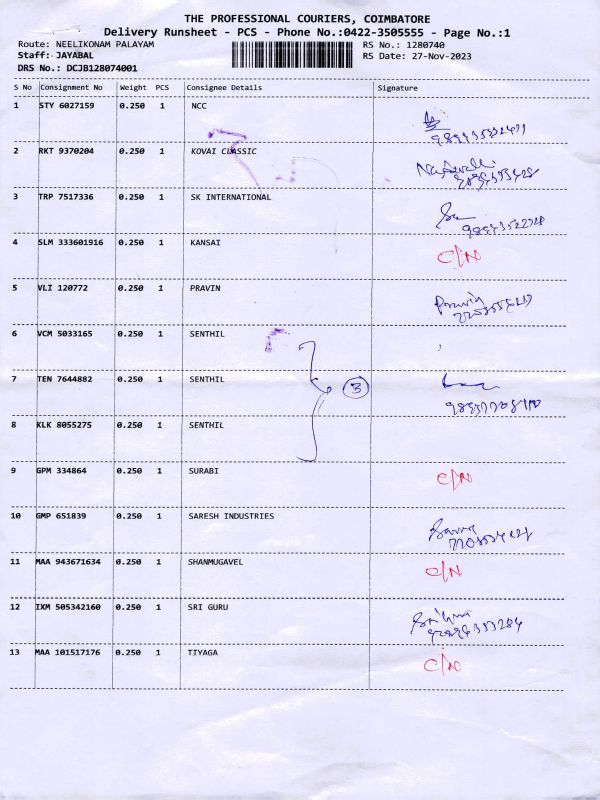 THE PROFESSIONAL COURIERS, COIMBATORE
Delivery Runsheet - PCS - Phone No.:0422-3505555 - Page No.:1
Route: NEELIKONAM PALAYAM RS No.: 1280740
Staff: JAYABAL RS Date: 27-Nov-2023
DRS No.: DCJB128074001
S No Consignment No Weight PCS Consignee Details Signature
1 STY 6027159 0.250 1 NCC
2 RKT 9370204 0.250 1 KOVAI CLASSIC
3 TRP 7517336 0.250 1 SK INTERNATIONAL
4 SLM 333601916 0.250 1 KANSAI C/N
5 VLI 120772 0.250 1 PRAVIN Pravin
6 VCM 5033165 0.250 1 SENTHIL
7 TEN 7644882 0.250 1 SENTHIL 3
8 KLK 8055275 0.250 1 SENTHIL
9 GPM 334864 0.250 1 SURABI C/N
10 GMP 651839 0.250 1 SARESH INDUSTRIES
11 MAA 943671634 0.250 1 SHANMUGAVEL C/N
12 IXM 505342160 0.250 1 SRI GURU
13 MAA 101517176 0.250 1 TIYAGA C/N